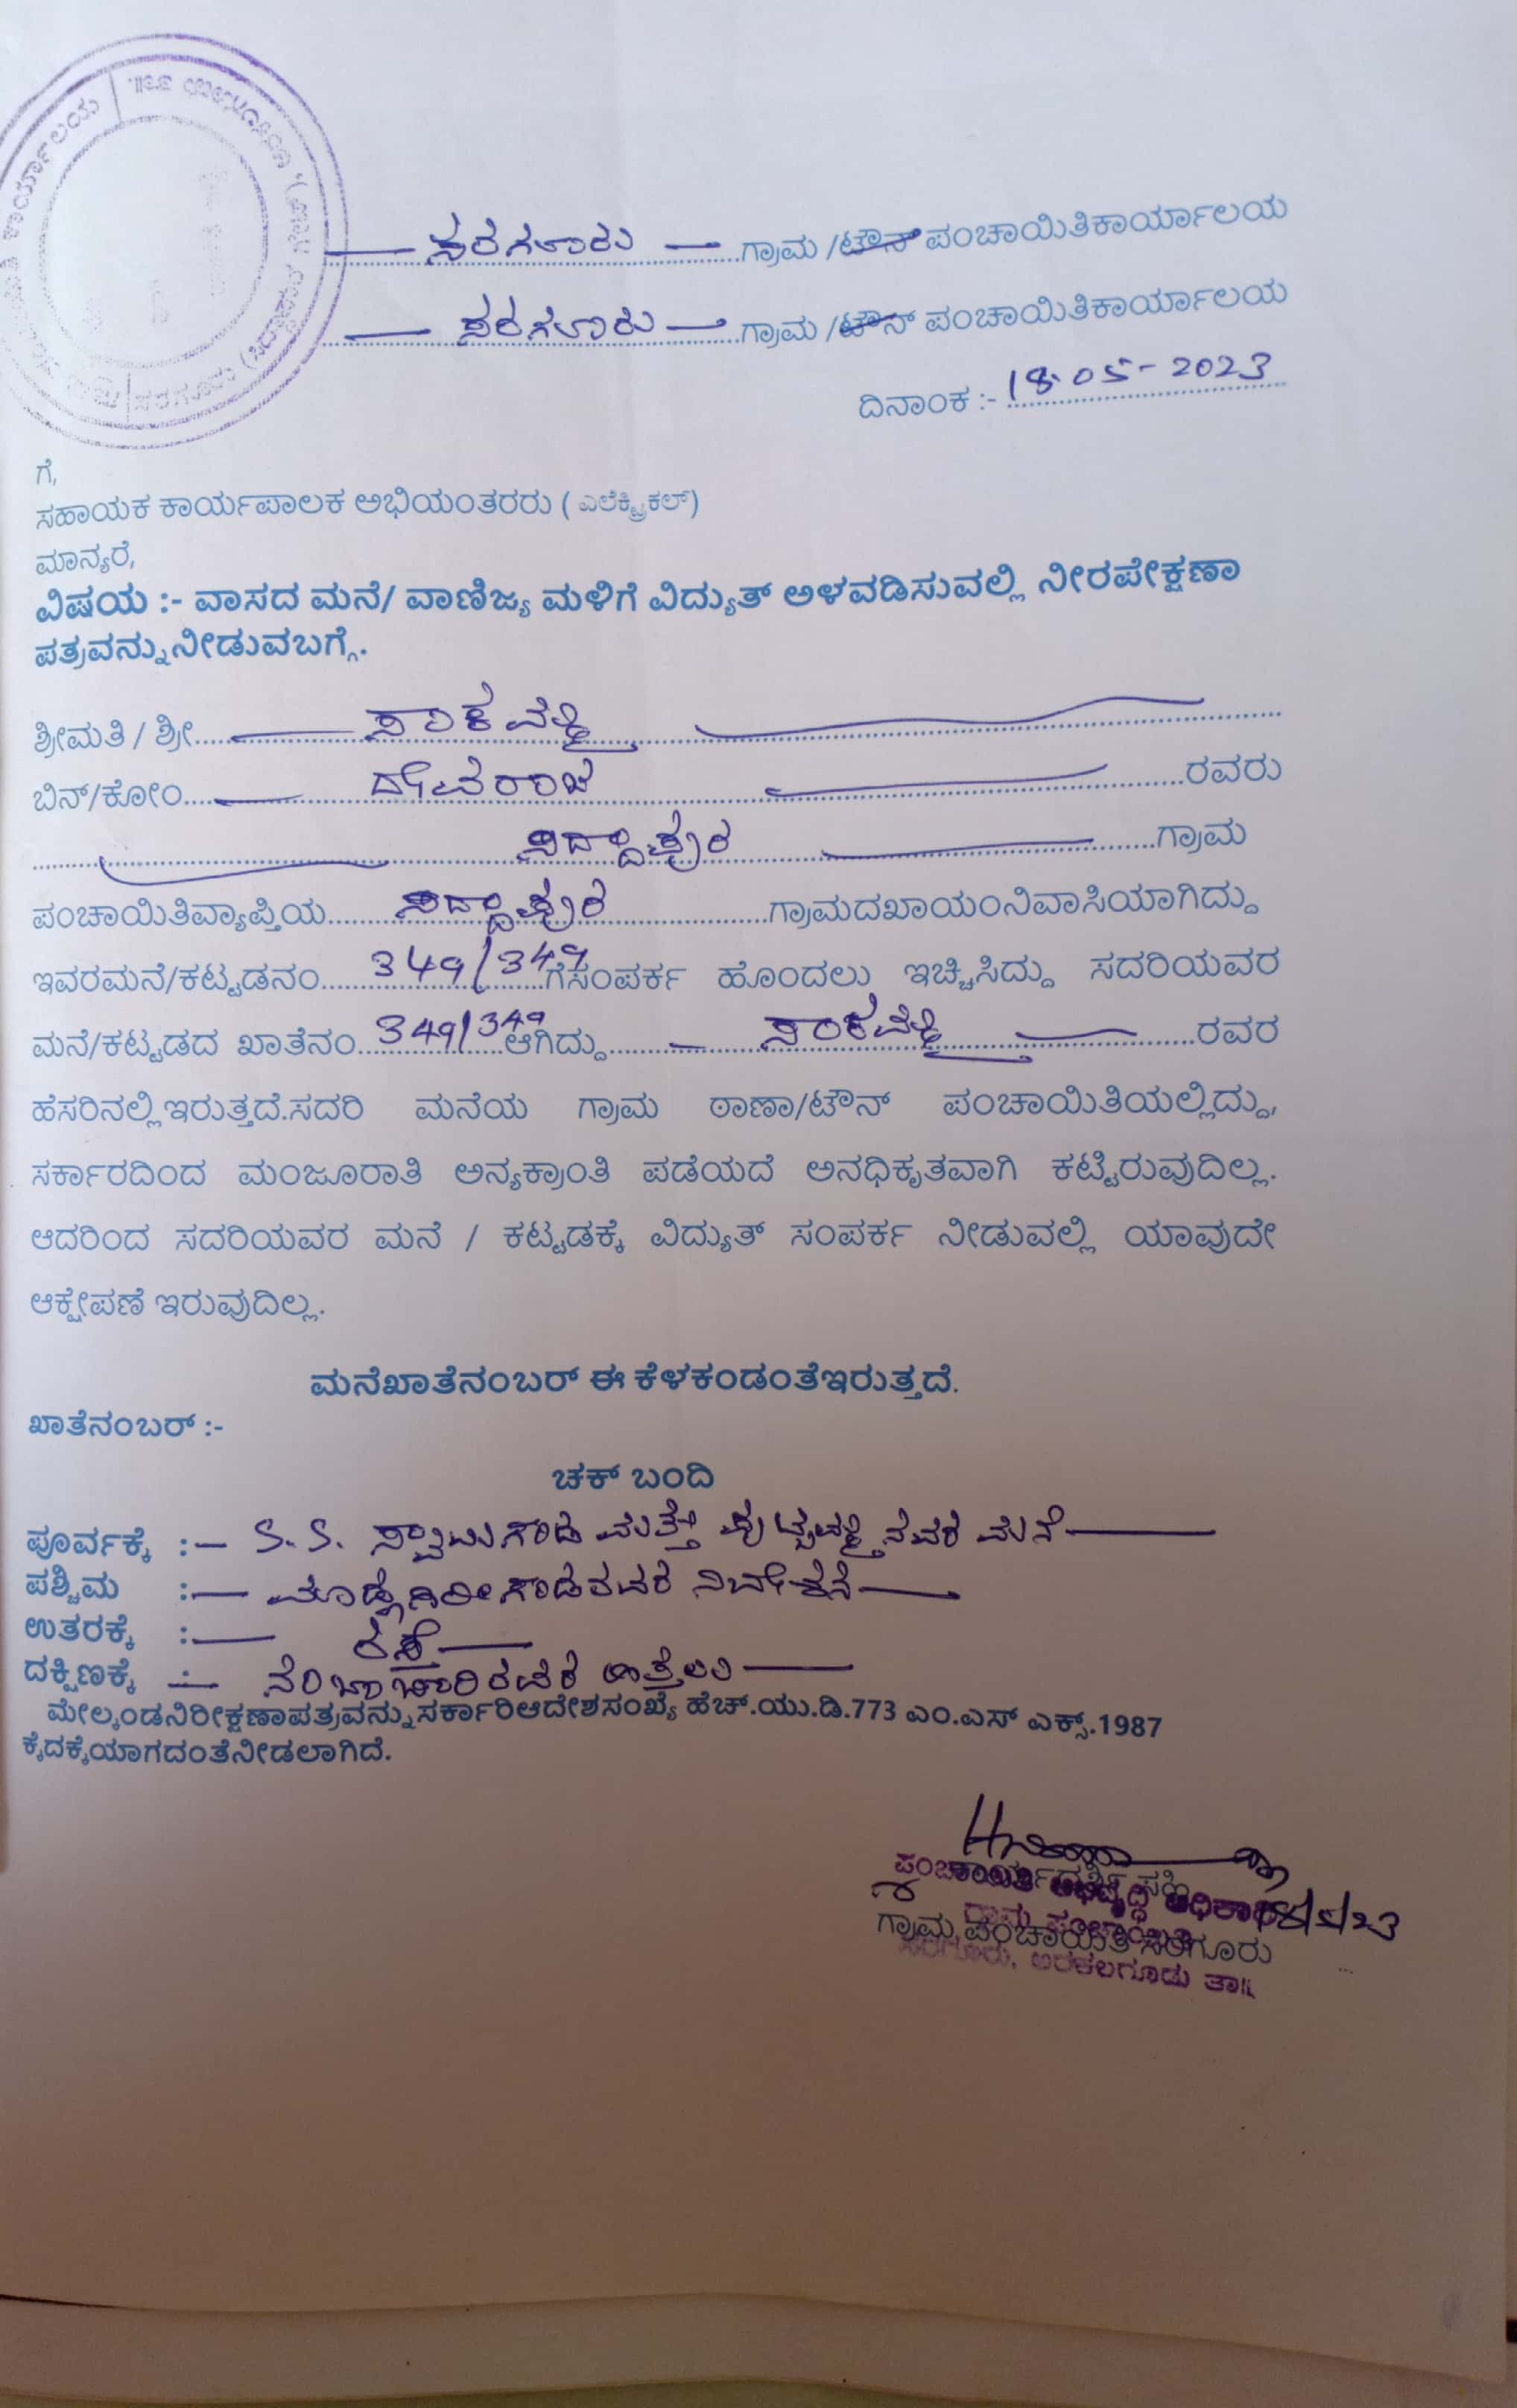 ಸರಗೂರು ಗ್ರಾಮ /ಟೌನ್ ಪಂಚಾಯಿತಿಕಾರ್ಯಾಲಯ
ಸರಗೂರು ಗ್ರಾಮ /ಟೌನ್ ಪಂಚಾಯಿತಿಕಾರ್ಯಾಲಯ
ದಿನಾಂಕ :- 18-05-2023
ಗೆ,
ಸಹಾಯಕ ಕಾರ್ಯಪಾಲಕ ಅಭಿಯಂತರರು ( ಎಲೆಕ್ಟ್ರಿಕಲ್)
ಮಾನ್ಯರೆ,
ವಿಷಯ :- ವಾಸದ ಮನೆ/ ವಾಣಿಜ್ಯ ಮಳಿಗೆ ವಿದ್ಯುತ್ ಅಳವಡಿಸುವಲ್ಲಿ ನೀರಪೇಕ್ಷಣಾ
ಪತ್ರವನ್ನು ನೀಡುವಬಗ್ಗೆ.
ಶ್ರೀಮತಿ / ಶ್ರೀ
ಬಿನ್/ಕೋಂ ದೇವರಾಜ ರವರು
ಸಿದ್ದಾಪುರ ಗ್ರಾಮ
ಪಂಚಾಯಿತಿವ್ಯಾಪ್ತಿಯ ಸಿದ್ದಾಪುರ ಗ್ರಾಮದಖಾಯಂನಿವಾಸಿಯಾಗಿದ್ದು
ಇವರಮನೆ/ಕಟ್ಟಡನಂ 349/349 ಗೆಸಂಪರ್ಕ ಹೊಂದಲು ಇಚ್ಚಿಸಿದ್ದು ಸದರಿಯವರ
ಮನೆ/ಕಟ್ಟಡದ ಖಾತೆನಂ 349/349 ಆಗಿದ್ದು ರವರ
ಹೆಸರಿನಲ್ಲಿ ಇರುತ್ತದೆ.ಸದರಿ ಮನೆಯ ಗ್ರಾಮ ಠಾಣಾ/ಟೌನ್ ಪಂಚಾಯಿತಿಯಲ್ಲಿದ್ದು,
ಸರ್ಕಾರದಿಂದ ಮಂಜೂರಾತಿ ಅನ್ಯಕ್ರಾಂತಿ ಪಡೆಯದೆ ಅನಧಿಕೃತವಾಗಿ ಕಟ್ಟಿರುವುದಿಲ್ಲ.
ಆದರಿಂದ ಸದರಿಯವರ ಮನೆ / ಕಟ್ಟಡಕ್ಕೆ ವಿದ್ಯುತ್ ಸಂಪರ್ಕ ನೀಡುವಲ್ಲಿ ಯಾವುದೇ
ಆಕ್ಷೇಪಣೆ ಇರುವುದಿಲ್ಲ.
ಮನೆಖಾತೆನಂಬರ್ ಈ ಕೆಳಕಂಡಂತೆಇರುತ್ತದೆ.
ಖಾತೆನಂಬರ್ :-
ಚಕ್ ಬಂದಿ
ಪೂರ್ವಕ್ಕೆ :- S.S. ಸ್ವಾಮಿಗೌಡ ಮತ್ತೆ ಮನೆ
ಪಶ್ಚಿಮ :- ನಿವೇಶನ
ಉತರಕ್ಕೆ :- ರಸ್ತೆ
ದಕ್ಷಿಣಕ್ಕೆ :- ಹಿತ್ತಲು
ಮೇಲ್ಕಂಡನಿರೀಕ್ಷಣಾಪತ್ರವನ್ನು ಸರ್ಕಾರಿಆದೇಶಸಂಖ್ಯೆ ಹೆಚ್.ಯು.ಡಿ.773 ಎಂ.ಎಸ್ ಎಕ್ಸ್.1987
ಕೈದಕ್ಕೆಯಾಗದಂತೆನೀಡಲಾಗಿದೆ.
ಪಂಚಾಯಿತಿ ಅಭಿವೃದ್ಧಿ ಅಧಿಕಾರಿ
18/5/23
ಗ್ರಾಮ ಪಂಚಾಯಿತಿ ಸರಗೂರು
ಸರಗೂರು, ಅರಕಲಗೂಡು ತಾ||